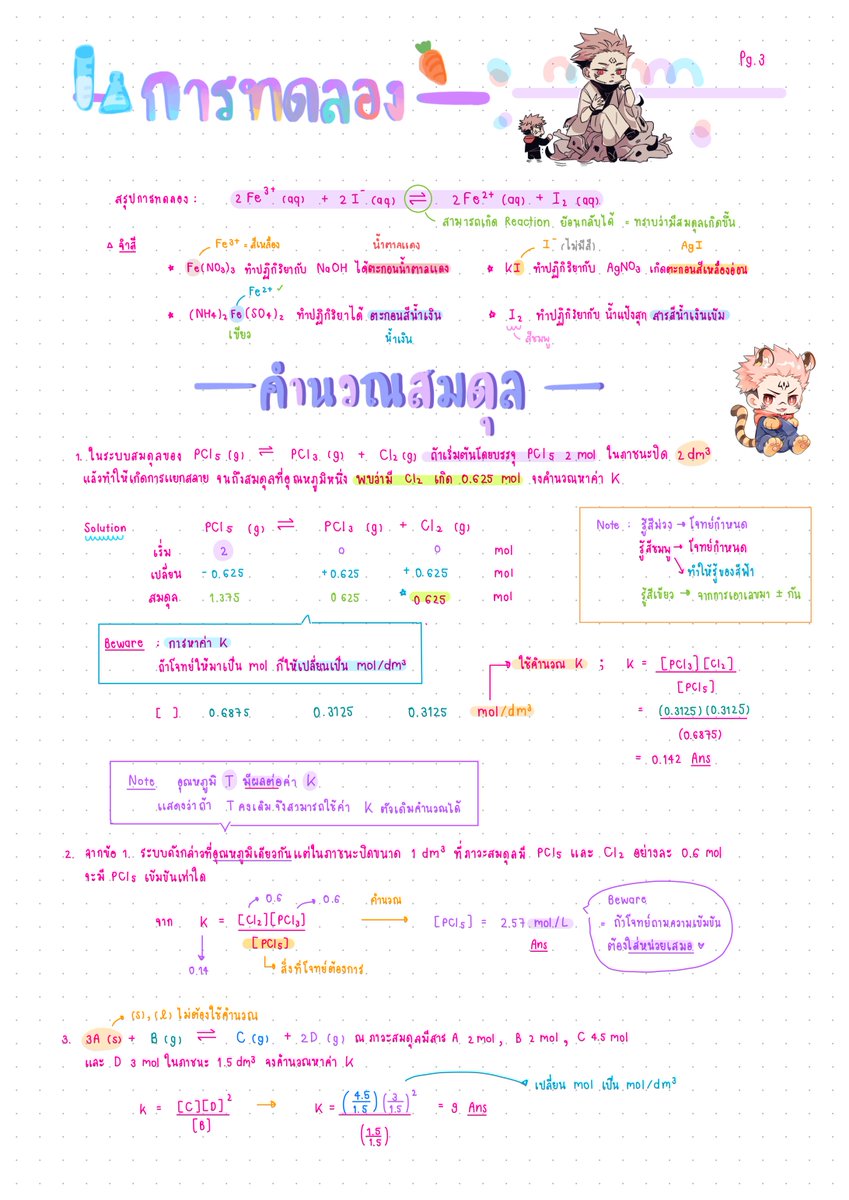 Pg.3
การทดลอง
สรุปการทดลอง : 2 Fe³⁺ (aq) + 2 I⁻ (aq) ⇌ 2 Fe²⁺ (aq) + I₂ (aq)
สามารถเกิด Reaction ย้อนกลับได้ = ทราบว่ามีสมดุลเกิดขึ้น
△ จำสี
Fe³⁺ = สีเหลือง
น้ำตาลแดง
* Fe(NO₃)₃ ทำปฏิกิริยากับ NaOH ได้ตะกอนน้ำตาลแดง
I⁻ (ไม่มีสี)
AgI
* KI ทำปฏิกิริยากับ AgNO₃ เกิดตะกอนสีเหลืองอ่อน
Fe²⁺ ✓
* (NH₄)₂Fe(SO₄)₂ ทำปฏิกิริยาได้ ตะกอนสีน้ำเงิน
เขียว
น้ำเงิน
* I₂ ทำปฏิกิริยากับ น้ำแป้งสุก สารสีน้ำเงินเข้ม
สีชมพู
คำนวณสมดุล
1. ในระบบสมดุลของ PCl₅ (g) ⇌ PCl₃ (g) + Cl₂ (g) ถ้าเริ่มต้นโดยบรรจุ PCl₅ 2 mol ในภาชนะปิด 2 dm³
แล้วทำให้เกิดการแยกสลาย จนถึงสมดุลที่อุณหภูมิหนึ่ง พบว่ามี Cl₂ เกิด 0.625 mol จงคำนวณหาค่า K
Solution PCl₅ (g) ⇌ PCl₃ (g) + Cl₂ (g)
เริ่ม 2 0 0 mol
เปลี่ยน -0.625 +0.625 +0.625 mol
สมดุล 1.375 0.625 * 0.625 mol
Note : รู้สีม่วง → โจทย์กำหนด
รู้สีชมพู → โจทย์กำหนด
ทำให้รู้ของสีฟ้า
รู้สีเขียว → จากการเอาเลขมา ± กัน
Beware : การหาค่า K
ถ้าโจทย์ให้มาเป็น mol ก็ให้เปลี่ยนเป็น mol/dm³
[ ] 0.6875 0.3125 0.3125 mol/dm³
ใช้คำนวณ K ; K = [PCl₃][Cl₂]
[PCl₅]
= (0.3125)(0.3125)
(0.6875)
= 0.142 Ans
Note อุณหภูมิ T มีผลต่อค่า K
แสดงว่าถ้า T คงเดิม จึงสามารถใช้ค่า K ตัวเดิมคำนวณได้
2. จากข้อ 1. ระบบดังกล่าวที่อุณหภูมิเดียวกันแต่ในภาชนะปิดขนาด 1 dm³ ที่ภาวะสมดุลมี PCl₃ และ Cl₂ อย่างละ 0.6 mol
จะมี PCl₅ เข้มข้นเท่าใด
0.6 0.6
จาก K = [Cl₂][PCl₃]
[PCl₅]
0.14
สิ่งที่โจทย์ต้องการ
คำนวณ
[PCl₅] = 2.57 mol/L
Ans
Beware
= ถ้าโจทย์ถามความเข้มข้น
ต้องใส่หน่วยเสมอ
(s), (l) ไม่ต้องใช้คำนวณ
3. 3A (s) + B (g) ⇌ C (g) + 2D (g) ณ ภาวะสมดุลมีสาร A 2 mol, B 2 mol, C 4.5 mol
และ D 3 mol ในภาชนะ 1.5 dm³ จงคำนวณหาค่า K
เปลี่ยน mol เป็น mol/dm³
k = [C][D]²
[B]
→ K = (4.5/1.5)(3/1.5)² = 9 Ans
(1.5/1.5)